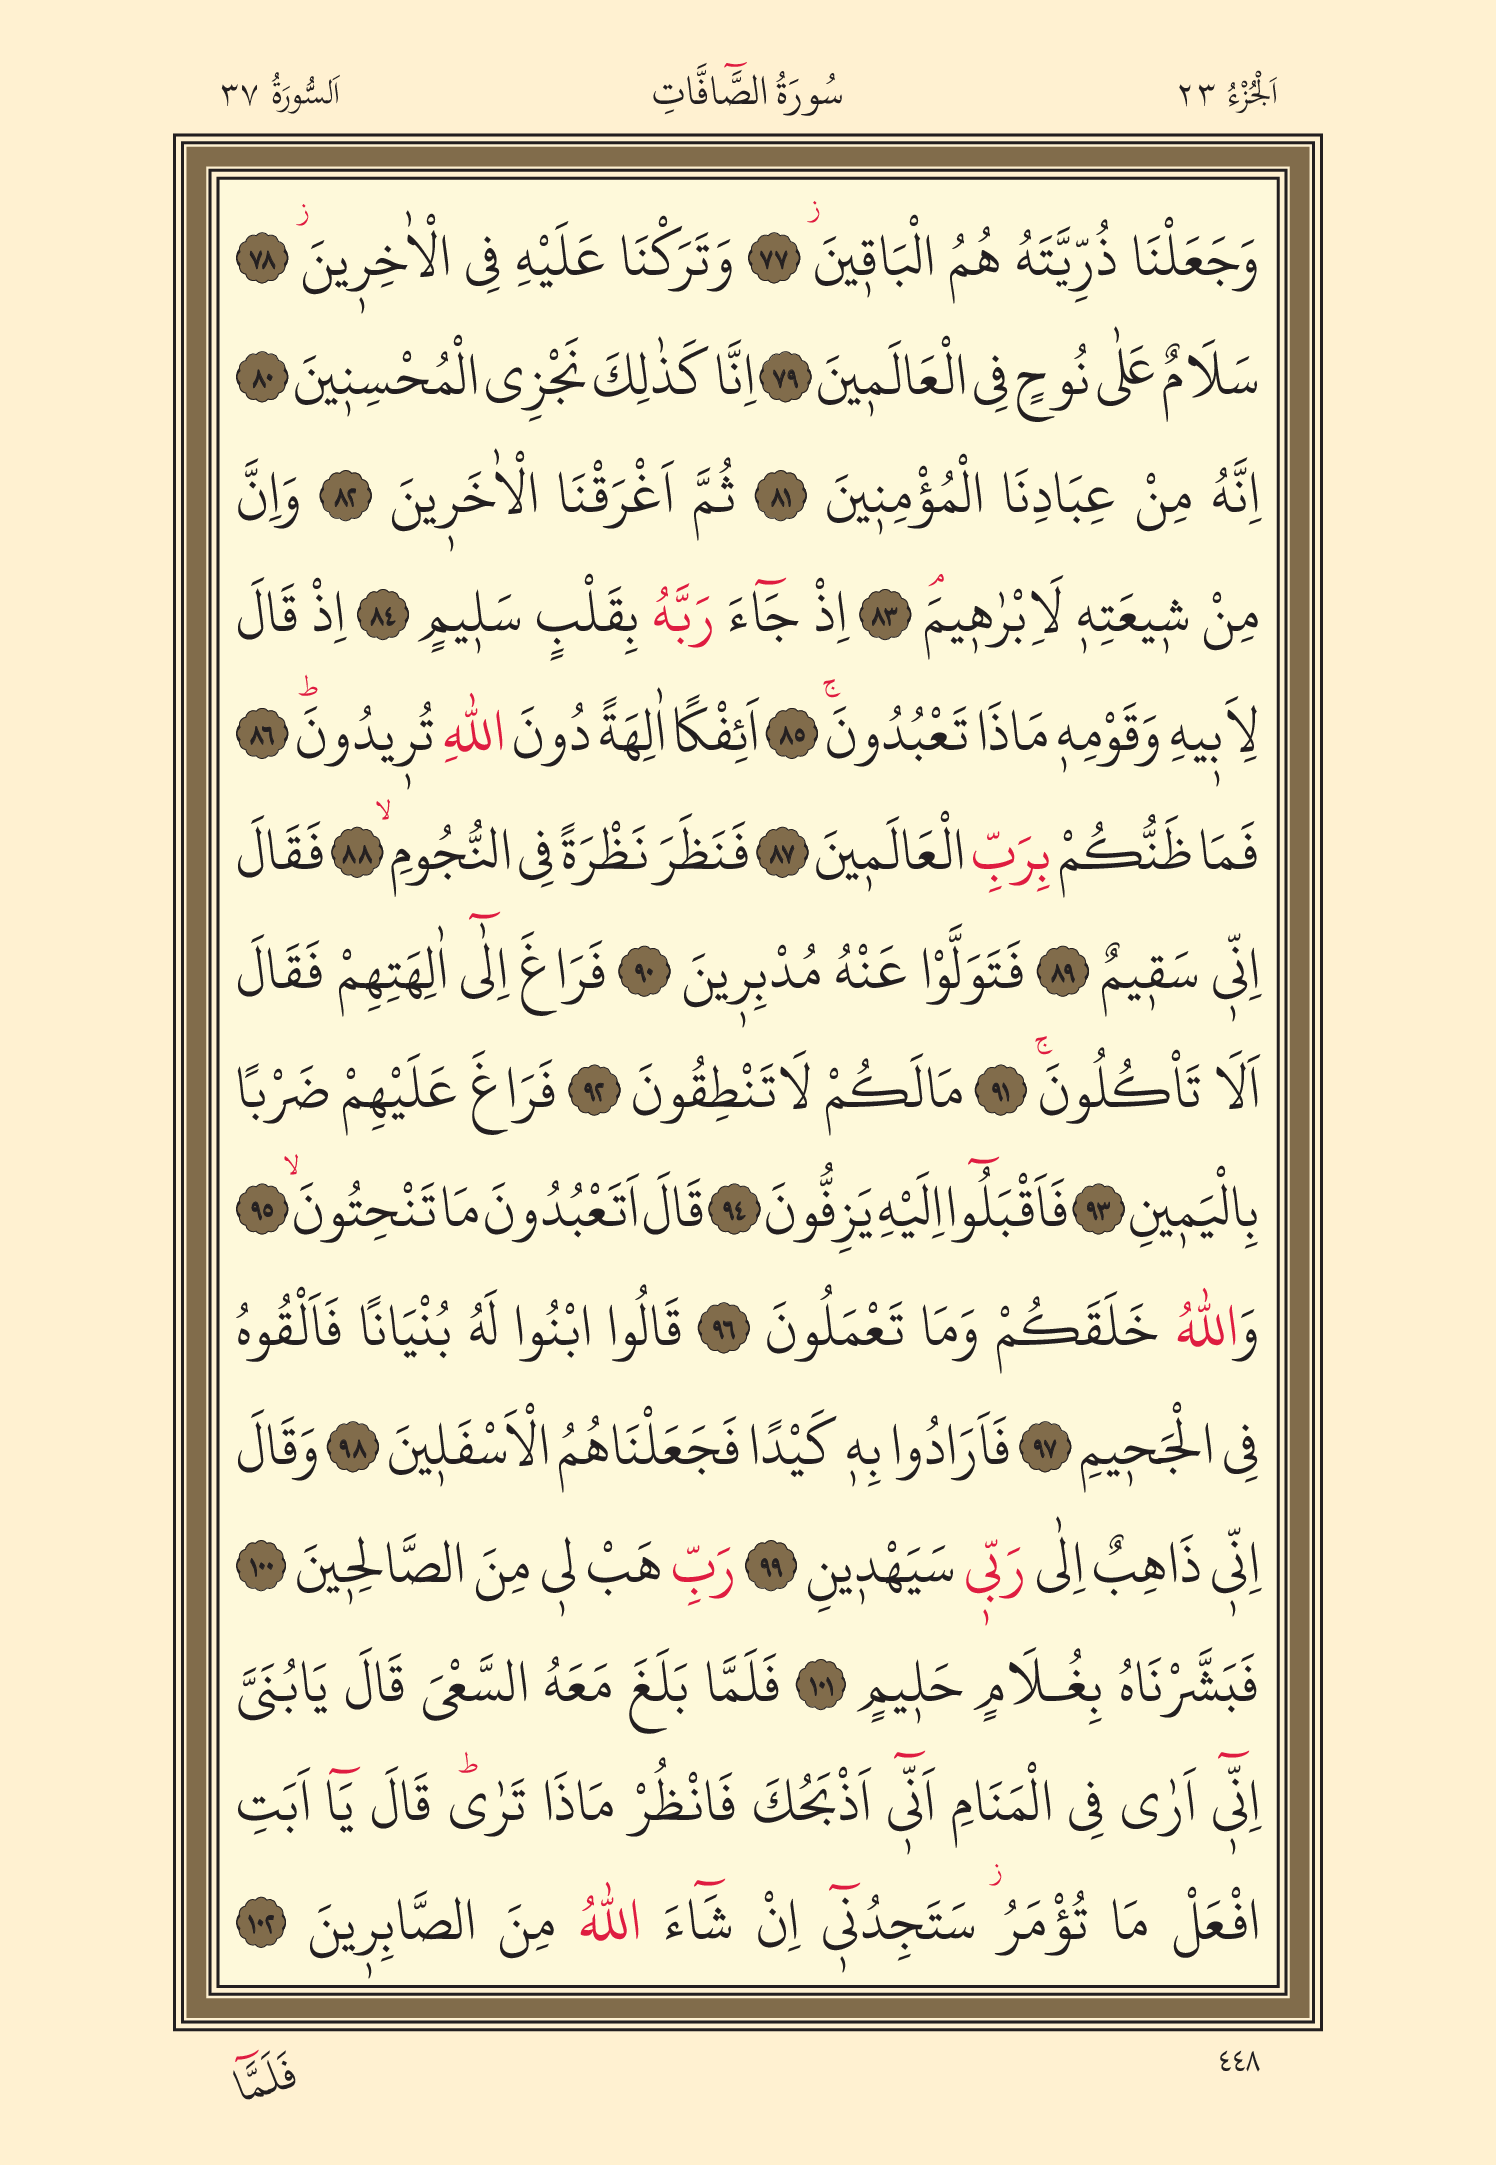 اَلْجُزْءُ ٢٣
سُورَةُ الصَّٓافَّاتِ
اَلسُّورَةُ ٣٧
وَجَعَلْنَا ذُرِّيَّتَهُ هُمُ الْبَاق۪ينَۘ ز ٧٧ وَتَرَكْنَا عَلَيْهِ فِى الْاٰخِر۪ينَ ز ٧٨
سَلَامٌ عَلٰى نُوحٍ فِى الْعَالَم۪ينَ ٧٩ اِنَّا كَذٰلِكَ نَجْزِى الْمُحْسِن۪ينَ ٨٠
اِنَّهُ مِنْ عِبَادِنَا الْمُؤْمِن۪ينَ ٨١ ثُمَّ اَغْرَقْنَا الْاٰخَر۪ينَ ٨٢ وَاِنَّ
مِنْ ش۪يعَتِه۪ لَاِبْرٰه۪يمَۢ ٨٣ اِذْ جَٓاءَ رَبَّهُ بِقَلْبٍ سَل۪يمٍ ٨٤ اِذْ قَالَ
لِاَب۪يهِ وَقَوْمِه۪ مَاذَا تَعْبُدُونَۚ ٨٥ اَئِفْكًا اٰلِهَةً دُونَ اللّٰهِ تُر۪يدُونَۜ ٨٦
فَمَا ظَنُّكُمْ بِرَبِّ الْعَالَم۪ينَ ٨٧ فَنَظَرَ نَظْرَةً فِى النُّجُومِۙ ٨٨ فَقَالَ
اِنّ۪ى سَق۪يمٌ ٨٩ فَتَوَلَّوْا عَنْهُ مُدْبِر۪ينَ ٩٠ فَرَاغَ اِلٰٓى اٰلِهَتِهِمْ فَقَالَ
اَلَا تَأْكُلُونَۚ ٩١ مَالَكُمْ لَا تَنْطِقُونَ ٩٢ فَرَاغَ عَلَيْهِمْ ضَرْبًا
بِالْيَم۪ينِ ٩٣ فَاَقْبَلُٓوا اِلَيْهِ يَزِفُّونَ ٩٤ قَالَ اَتَعْبُدُونَ مَا تَنْحِتُونَۙ ٩٥
وَاللّٰهُ خَلَقَكُمْ وَمَا تَعْمَلُونَ ٩٦ قَالُوا ابْنُوا لَهُ بُنْيَانًا فَاَلْقُوهُ
فِى الْجَح۪يمِ ٩٧ فَاَرَادُوا بِه۪ كَيْدًا فَجَعَلْنَاهُمُ الْاَسْفَل۪ينَ ٩٨ وَقَالَ
اِنّ۪ى ذَاهِبٌ اِلٰى رَبّ۪ى سَيَهْد۪ينِ ٩٩ رَبِّ هَبْ ل۪ى مِنَ الصَّالِح۪ينَ ١٠٠
فَبَشَّرْنَاهُ بِغُلَامٍ حَل۪يمٍ ١٠١ فَلَمَّا بَلَغَ مَعَهُ السَّعْىَ قَالَ يَابُنَىَّ
اِنّ۪ٓى اَرٰى فِى الْمَنَامِ اَنّ۪ٓى اَذْبَحُكَ فَانْظُرْ مَاذَا تَرٰىۜ قَالَ يَٓا اَبَتِ
افْعَلْ مَا تُؤْمَرُ ز سَتَجِدُن۪ٓى اِنْ شَٓاءَ اللّٰهُ مِنَ الصَّابِر۪ينَ ١٠٢
٤٤٨
فَلَمَّٓا